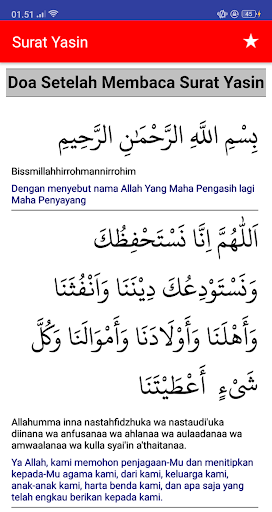 01.51
45
Surat Yasin
Doa Setelah Membaca Surat Yasin
بِسْمِ اللَّهِ الرَّحْمَٰنِ الرَّحِيمِ
Bissmillahhirrohmannirrohim
Dengan menyebut nama Allah Yang Maha Pengasih lagi
Maha Penyayang
اَللّٰهُمَّ اِنَّا نَسْتَحْفِظُكَ
وَنَسْتَوْدِعُكَ دِيْنَنَا وَاَنْفُثَنَا
وَأَهْلَنَا وَأَوْلَادَنَا وَأَمْوَالَنَا وَكُلَّ
شَىْءٍ أَعْطَيْتَنَا
Allahumma inna nastahfidzhuka wa nastaudi'uka
diinana wa anfusanaa wa ahlanaa wa aulaadanaa wa
amwaalanaa wa kulla syai'in a'thaitanaa.
Ya Allah, kami memohon penjagaan-Mu dan menitipkan
kepada-Mu agama kami, dari kami, keluarga kami,
anak-anak kami, harta benda kami, dan apa saja yang
telah engkau berikan kepada kami.